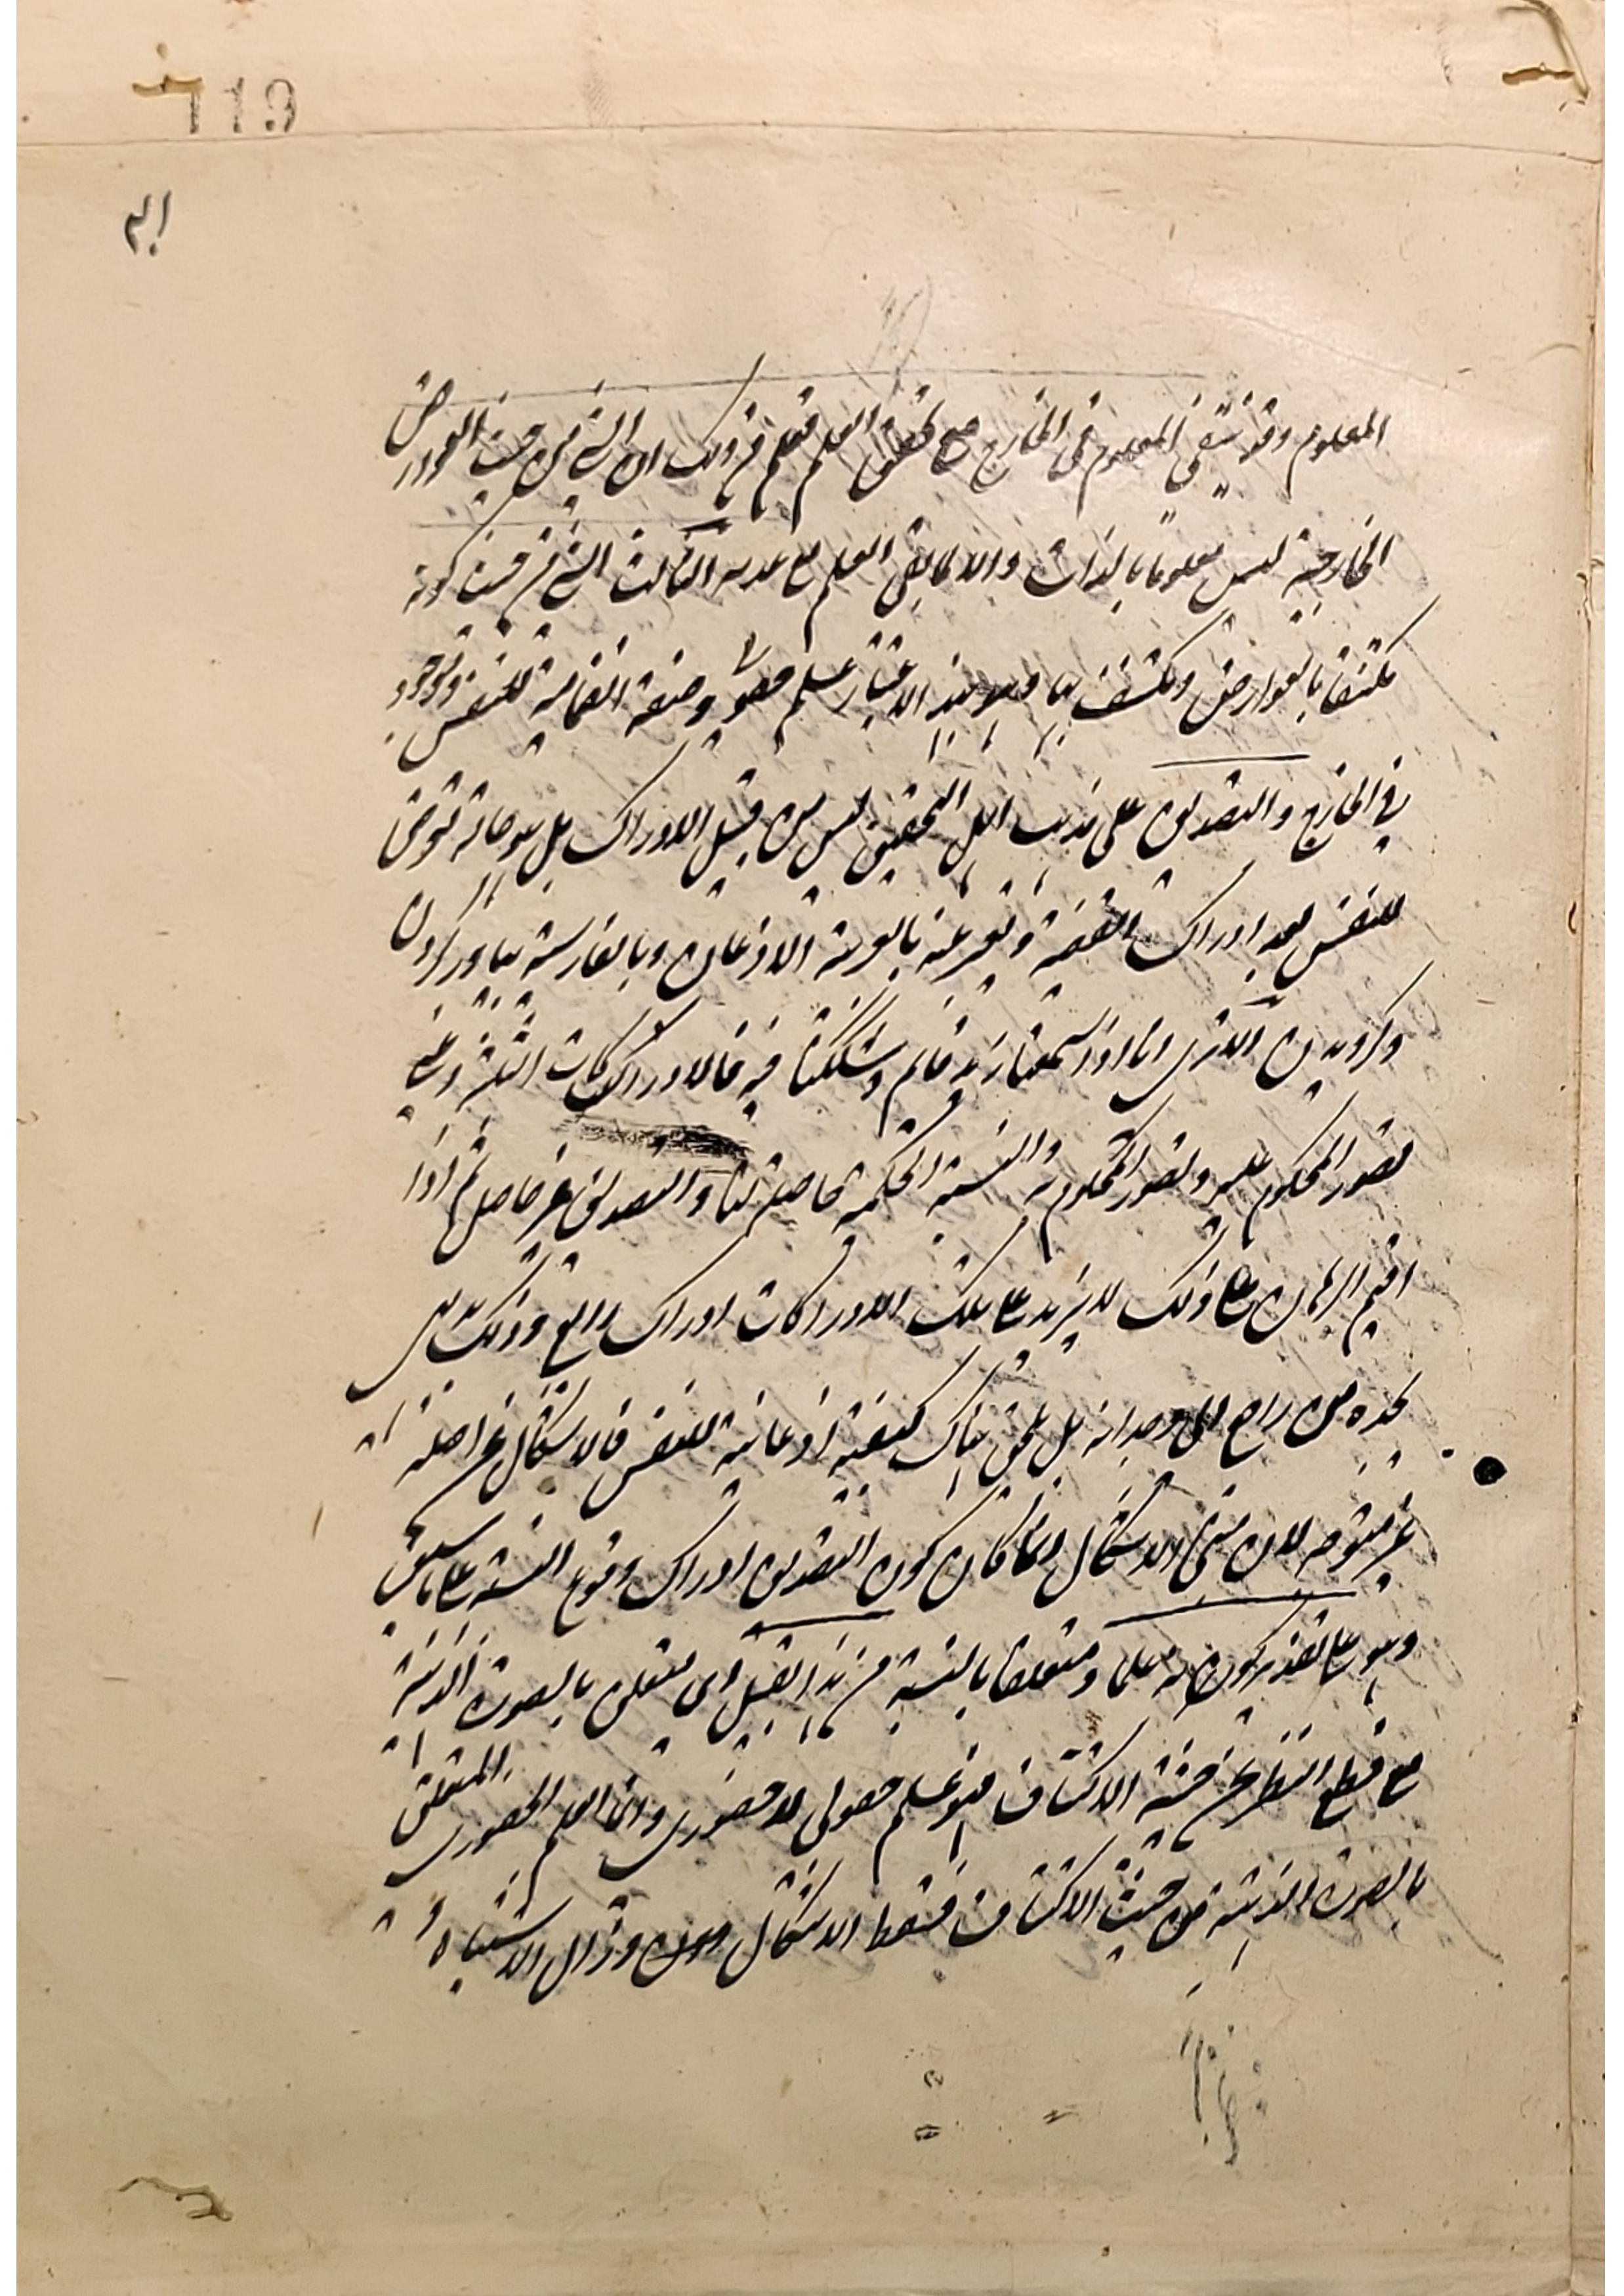 المعلوم وقد ينتفى المعلوم فى الخارج مع تحقق العلم فعلم من ذلك ان الشئ من حيث العوارض
الخارجية ليس معلوما بالذات والا لما بقى العلم مع عدمه الثالث الشئ من حيث كونه
مكتنفا بالعوارض ومكتنف بها وهو بهذا الاعتبار علم حصولى وصفة انضمامية للنفس وموجود
فى الخارج والتصديق على مذهب اهل التحقيق ليس من قبيل الادراك بل هو حالة تعرض
للنفس بعد ادراك القضية ويعبر عنه بالعربية الاذعان وبالفارسية بباور كردن
وكرويدن الا ترى انا اذا سمعنا زيد قائم وشككنا فيه فالادراكات الثلثة اعنى
تصور المحكوم عليه وتصور المحكوم به والنسبة الحكمية حاصلة لنا والتصديق غير حاصل ثم اذا
اقيم البرهان على ذلك لا يزيد على تلك الادراكات ادراك رابع وذلك بديهى
يجده من راجع الى وجدانه بل يلحق هناك كيفية اذعانية للنفس فالاشكال من اصله
غير متوجه لان مبنى الاشكال انما كان كون التصديق ادراك وقوع النسبة على ما سبق
وهو على تقدير كونه علما ومتعلقا بالنسبة من هذا القبيل اى متعلق بالصورة الذهنية
مع قطع النظر عن حيثية الاكتناف فهو علم حصولى لا حضورى وانما العلم الحضورى المتعلق
بالصورة الذهنية من حيث الاكتناف فسقط الاشكال وزال الاشتباه